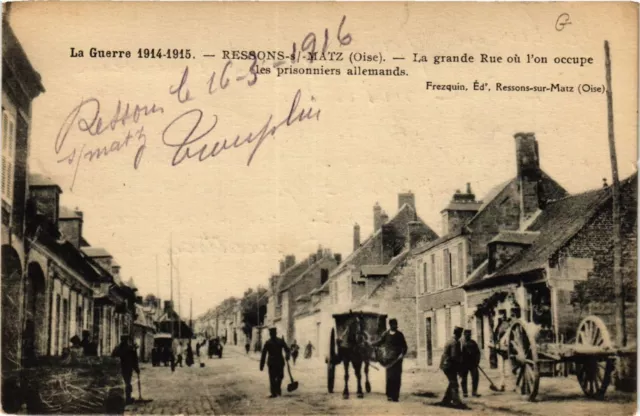 G
La Guerre 1914-1915. — RESSONS-s/-MATZ (Oise). — La grande Rue où l'on occupe
des prisonniers allemands.
Frezquin, Édr, Ressons-sur-Matz (Oise).
Ressons le 16-3-1916
s/matz